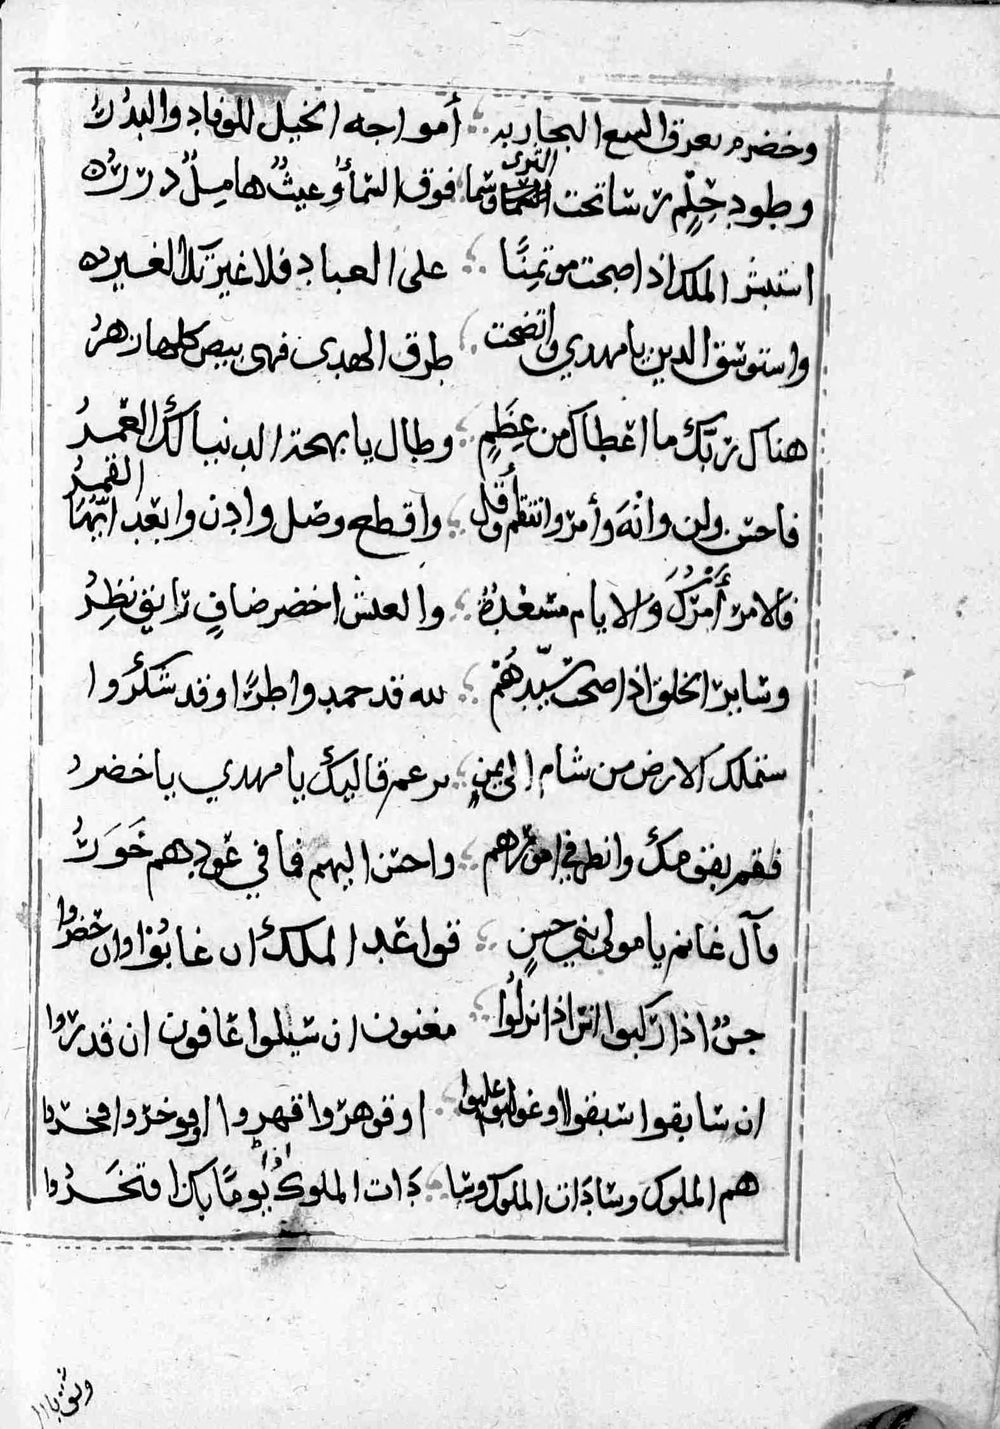 وخضرم يعرق السبع البحار به ؞ أمواجه الخيل للوفاد والبدر
وطود حلم رسا تحت الثرى وسما فوق السما وغيث هامل درر
استبشر الملك اذ اصبحت موتمنا ؞ على العباد فلا غيرتك الغير
واستوسق الدين يا مهدي واتضحت ؞ طرق الهدى فهى بيض كلها زهر
هناك ربك ما اعطاك من عظم ؞ وطال يا بهجة الدنيا لك العمر
فاحسن ولن وانه وأمر وانتقم وقل ؞ واقطع وصل وادن وابعد ايها القمر
فالامر أمرك والايام مسعدة ؞ والعيش اخضر ضاف رايق نظر
وساير الخلق اذ اصبحت سيدهم ؞ لله قد حمدوا طرا وقد شكروا
ستملك الارض من شام الى يمن ؞ برغم قاليك يا مهدي يا خضر
فقم بفقمك وانظر في امورهم ؞ واحسن اليهم فما في عودهم خور
وآل غانم يا مولى بني حسن ؞ قواعد الملك ان غابوا وان حضروا
جن اذا ركبوا انس اذا نزلوا ؞ مغنون ان سيلوا عافون ان قدروا
ان سابقوا سبقوا او غولبوا غلبوا ؞ او قوهروا قهروا او فوخروا فخروا
هم الملوك وسادات الملوك وسا ؞ دات الملوك اذا يوما بكذا فتخروا